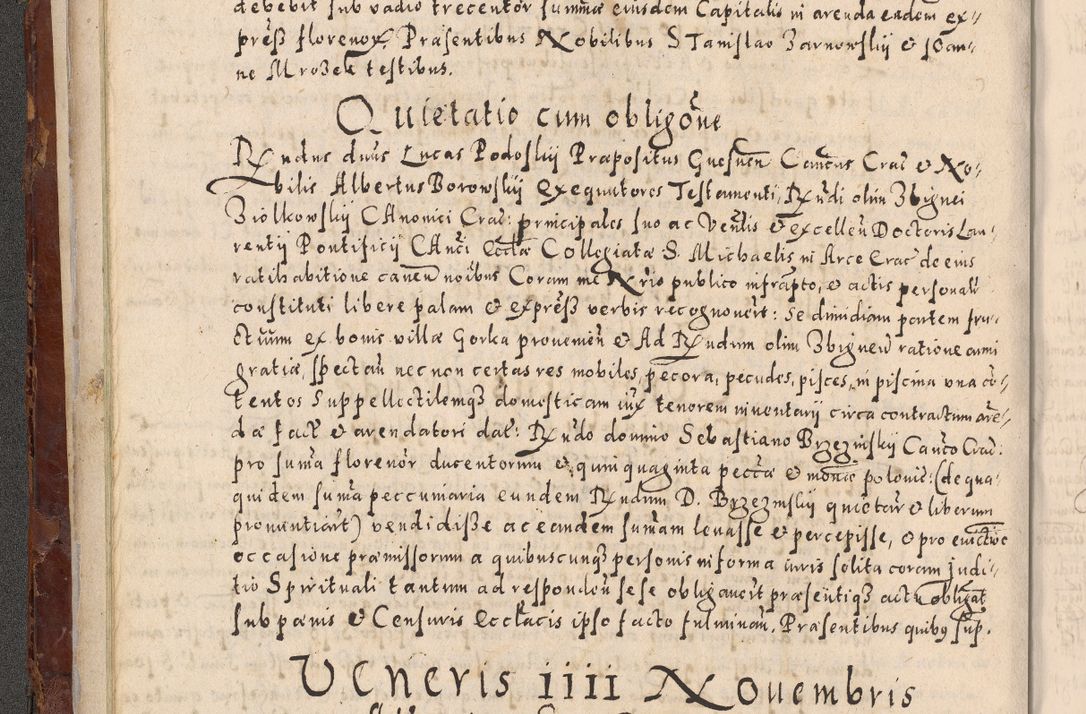 debebit sub vadio trecentor summæ eiusdem Capitalis in arenda eadem ex-
preß florenox. Præsentibus Nobilibus Stanislao Zarnowskij & Joan-
ne Mrozek testibus.
Quietatio cum obligõne
Rxndus dnus Lucas Podoskij Præpositus Gnesneñ Cancus Crac & No-
bilis Albertus Borowskij Exequutores Testamenti, Rxndi olim Zbignei
Ziolkowskij CAnonici Crac: principales suo ac Veñlis & excelleñ Doctoris Lau-
rentij Pontificij CAnci Ecclæ Collegiatæ S. Michaelis in Arce Crac de eius
ratihabitione caueñ noibus Coram me Nrio publico infrapto, & actis personalr
constituti libere palam & expreß verbis recognoverūt: Se dimidiam partem fru-
ctuum ex bonis villæ Gorka provenieñ & Ad Rxndum olim Zbigneū ratione anni
gratiæ, spectañ nec non certas res mobiles, pecora, pecudes, pisces, in piscina una cõ-
tentos Suppellectilemqȝ domesticam iux tenorem inventarij circa contractum arē-
dæ fact & arendatori dat: Rxndo domino Sebastiano Brzezinskij Canco Crac:
pro suma florenor ducentorum & quinquaginta peccæ & monæ polonic: (de qua-
quidem suma peccuniaria eundem Rxndum D. Brzezinskij quietar & liberum
pronuntiart) vendidisse ac eandem sumam levasse & percepisse, & pro evictioe
occasione præmissorum a quibuscunqȝ personis in forma iuris solita coram Judi-
tio Spirituali tantum ad respondeñ sese obligaverūt præsentiqȝ actu obligāt
sub pœnis & Censuris Ecclacis ipso facto fulminañ. Præsentibus quibȝ sup.
Veneris IIII Novembris